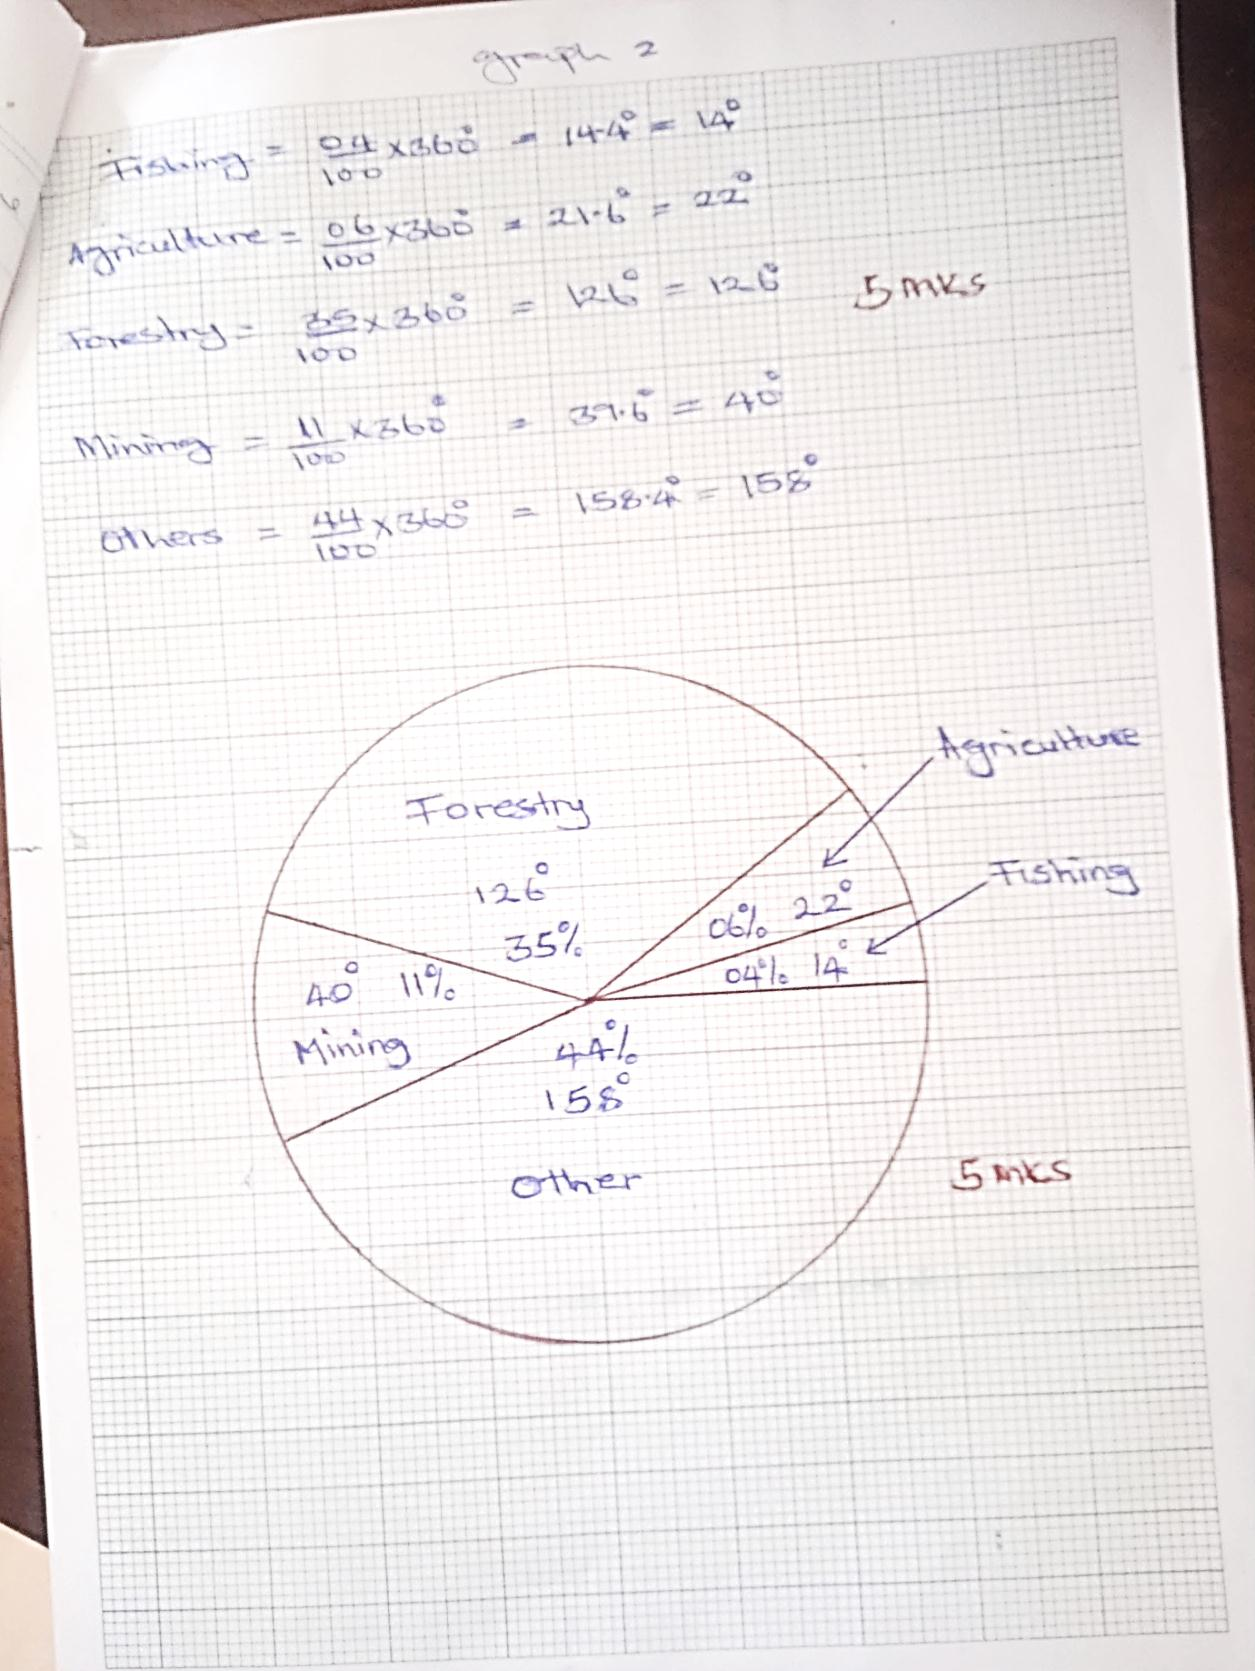 graph 2
Fishing = 04/100 x360° = 14.4° = 14°
Agriculture = 06/100 x360° = 21.6° = 22°
Forestry = 35/100 x 360° = 126° = 126°
5 mks
Mining = 11/100 x360° = 39.6° = 40°
Others = 44/100 x360° = 158.4° = 158°
Agriculture
Forestry
Fishing
126°
06% 22°
35%
04% 14°
40° 11%
Mining
44%
158°
Other
5 mks